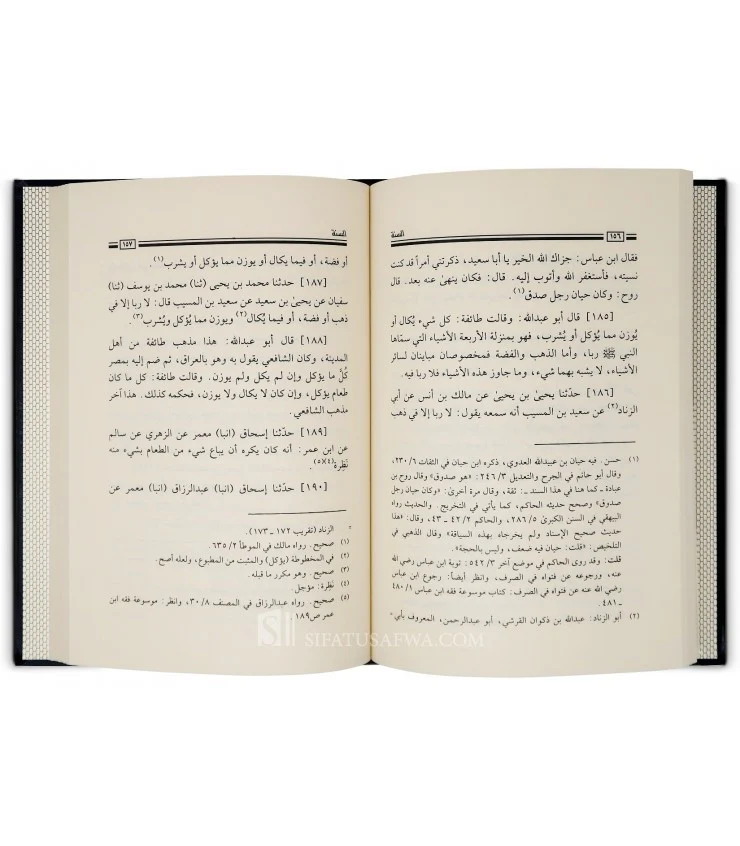 ١٥٦ السنة
فقال ابن عباس: جزاك الله الخير يا أبا سعيد، ذكرتني أمراً قد كنت
نسيته، فأستغفر الله وأتوب إليه. قال: فكان ينهىٰ عنه بعد. قال
روح: وكان حيان رجل صدق(١).
[١٨٥] قال أبو عبدالله: وقالت طائفة: كل شيء يُكال أو
يُوزن مما يُؤكل أو يُشرب، فهو بمنزلة الأربعة الأشياء التي سمّاها
النبي ﷺ ربا، وأما الذهب والفضة فمخصوصان مباينان لسائر
الأشياء، لا يشبه بهما شيء، وما جاوز هذه الأشياء فلا ربا فيه.
[١٨٦] حدّثنا يحيىٰ بن يحيىٰ عن مالك بن أنس عن أبي
الزناد(٢) عن سعيد بن المسيب أنه سمعه يقول: لا ربا إلا في ذهب
(١) حسن. فيه حيان بن عبيدالله العدوي، ذكره ابن حبان في الثقات ٢٣٠/٦،
وقال أبو حاتم في الجرح والتعديل ٢٤٦/٣: «هو صدوق» وقال روح بن
عبادة ـ كما هنا في هذا السند ـ: ثقة، وقال مرة أخرىٰ: «وكان حيان رجل
صدوق» وصحح حديثه الحاكم، كما يأتي في التخريج. والحديث رواه
البيهقي في السنن الكبرىٰ ٢٨٦/٥، والحاكم ٤٢/٢ ـ ٤٣، وقال: «هذا
حديث صحيح الإسناد ولم يخرجاه بهذه السياقة» وقال الذهبي في
التلخيص: «قلت: حيان فيه ضعف، وليس بالحجة».
قلت: وقد روى الحاكم في موضع آخر ٥٤٢/٣: توبة ابن عباس رضي الله
عنه، ورجوعه عن فتواه في الصرف، وانظر أيضاً: رجوع ابن عباس
رضي الله عنه عن فتواه في الصرف: كتاب موسوعة فقه ابن عباس ٤٨٠/١
ـ ٤٨١.
(٢) أبو الزناد: عبدالله بن ذكوان القرشي، أبو عبدالرحمن، المعروف بأبي=
السنة ١٥٧
أو فضة، أو فيما يكال أو يوزن مما يؤكل أو يشرب(١).
[١٨٧] حدثنا محمد بن يحيىٰ (ثنا) محمد بن يوسف (ثنا)
سفيان عن يحيىٰ بن سعيد عن سعيد بن المسيب قال: لا ربا إلا في
ذهب أو فضة، أو فيما يُكال(٢) ويوزن مما يُؤكل ويُشرب(٣).
[١٨٨] قال أبو عبدالله: هذا مذهب طائفة من أهل
المدينة، وكان الشافعي يقول به وهو بالعراق، ثم ضم إليه بمصر
كُلَّ ما يؤكل وإن لم يكل ولم يوزن. وقالت طائفة: كل ما كان
طعام يؤكل، وإن كان لا يكال ولا يوزن، فحكمه كذلك. هذا آخر
مذهب الشافعي.
[١٨٩] حدّثنا إسحاق (انبا) معمر عن الزهري عن سالم
عن ابن عمر: أنه كان يكره أن يباع شيء من الطعام بشيء منه
نَظِرة(٤)(٥).
[١٩٠] حدّثنا إسحاق (انبا) عبدالرزاق (انبا) معمر عن
= الزناد (تقريب ١٧٢ ـ ١٧٣).
(١) صحيح. رواه مالك في الموطأ ٦٣٥/٢.
(٢) في المخطوطة (يؤكل) والمثبت من المطبوع، ولعله أصح.
(٣) صحيح. وهو مكرر ما قبله.
(٤) نَظِرة: مؤجل.
(٥) صحيح. رواه عبدالرزاق في المصنف ٣٠/٨، وانظر: موسوعة فقه ابن
عمر ص١٨٩.
SIFATUSAFWA.COM